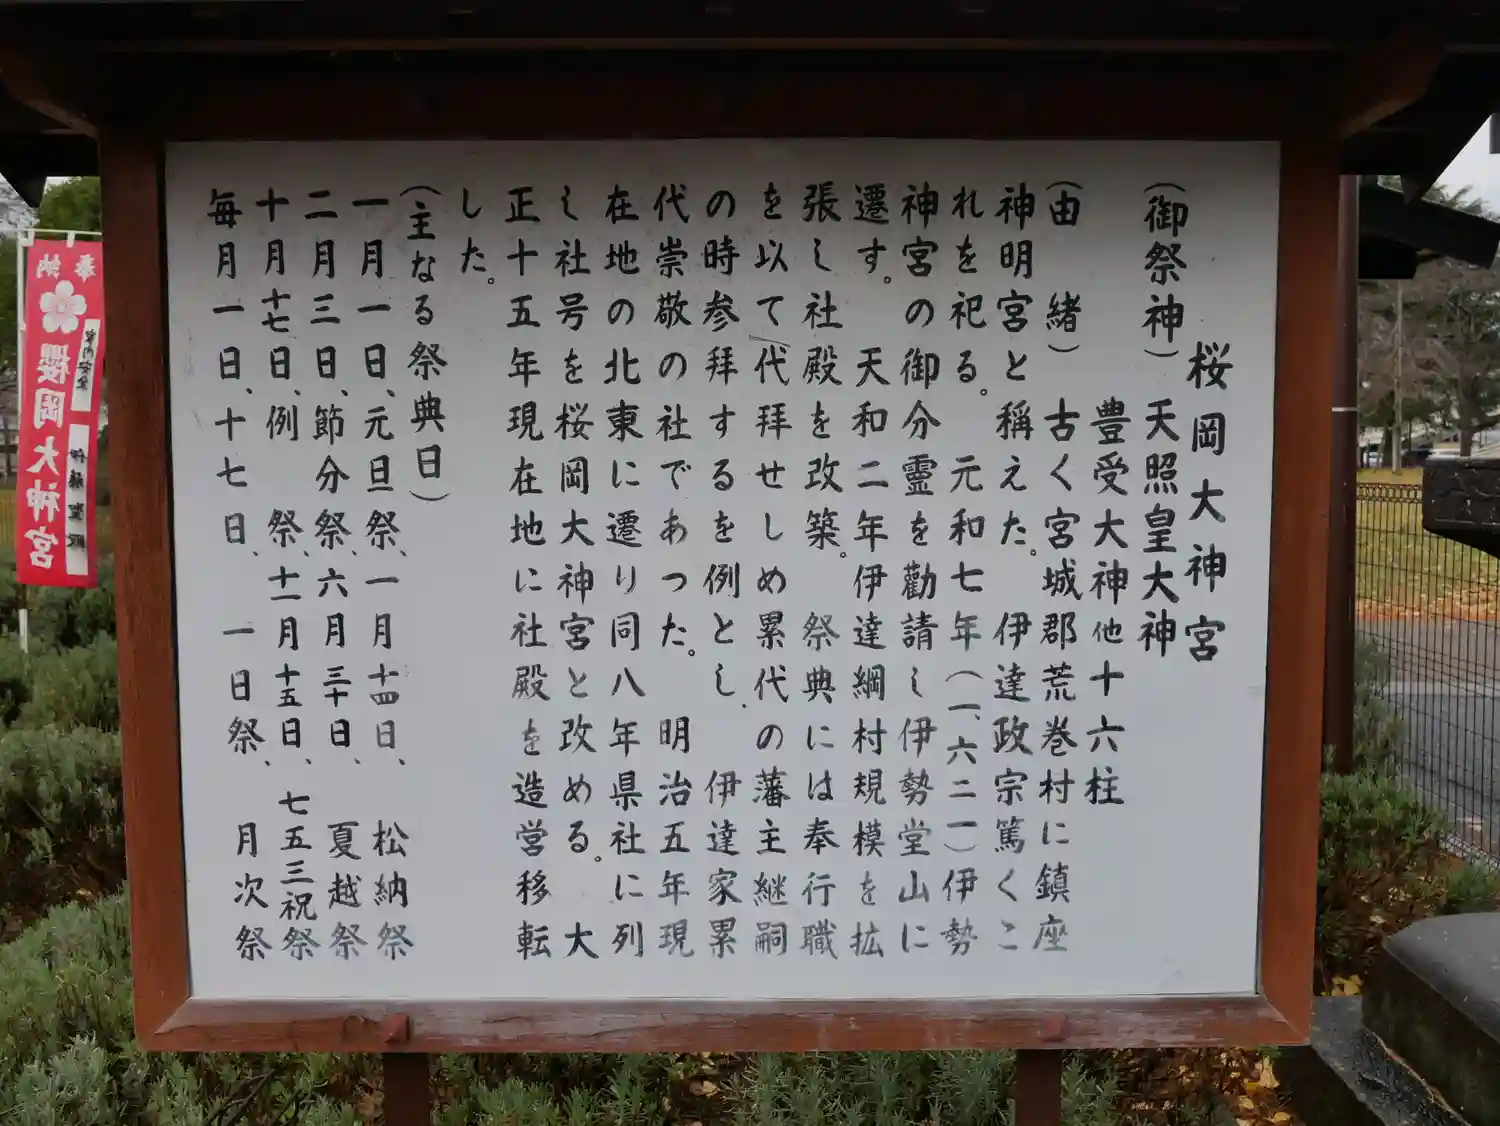 桜岡大神宮
(御祭神)天照皇大神
豊受大神他十六柱
(由 緒) 古く宮城郡荒巻村に鎮座
神明宮と稱えた。伊達政宗篤くこ
れを祀る。 元和七年(一、六二一)伊勢
神宮の御分霊を勸請し伊勢堂山に
遷す。 天和二年伊達綱村規模を拡
張し社殿を改築。 祭典には奉行職
を以て代拝せしめ累代の藩主継嗣
の時参拝するを例とし、 伊達家累
代崇敬の社であった。 明治五年現
在地の北東に遷り同八年県社に列
し社号を桜岡大神宮と改める。 大
正十五年現在地に社殿を造営移転
した。
(主なる祭典日)
一月一日、元旦祭、一月十四日、 松納祭
二月三日、節分祭、六月三十日、 夏越祭
十月十七日、例 祭、十一月十五日、七五三祝祭
毎月一日、十七日、 一日祭、 月次祭
奉納
家内安全
櫻岡大神宮